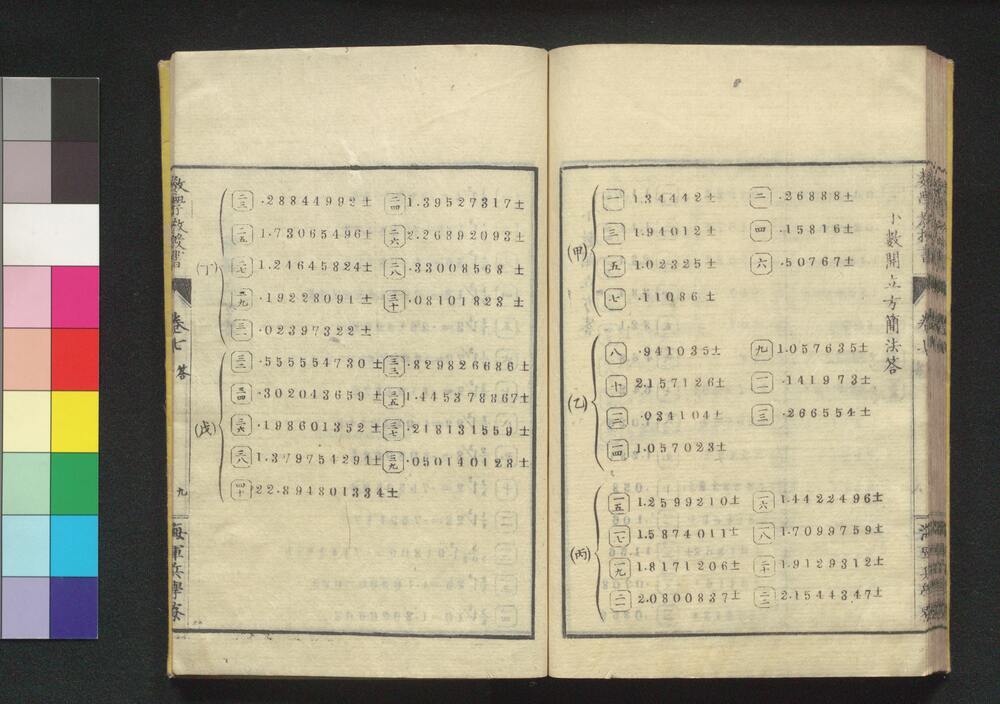 小數開立方簡法答
(甲)
一 1.34442± 二 .26888±
三 1.94012± 四 .15816±
五 1.02325± 六 .50767±
七 .11086±
(乙)
八 .941035± 九 1.057635±
十 2.157126± 一一 .141973±
一二 .034104± 一三 .266554±
一四 1.057023±
(丙)
一五 1.2599210± 一六 1.4422496±
一七 1.5874011± 一八 1.7099759±
一九 1.8171206± 二十 1.9129312±
二一 2.0800837± 二二 2.1544347±
(丁)
二三 .28844992± 二四 1.39527317±
二五 1.73065496± 二六 2.26892093±
二七 1.24645824± 二八 .33008568±
二九 .19228091± 三十 .08101823±
三一 .02397322±
(戊)
三二 .555554730± 三三 .829826686±
三四 .302043659± 三五 1.445378867±
三六 .198601352± 三七 .218131559±
三八 1.379754291± 三九 .050140128±
四十 22.894801334±
數學教授書
卷七 答
九
海軍兵學寮